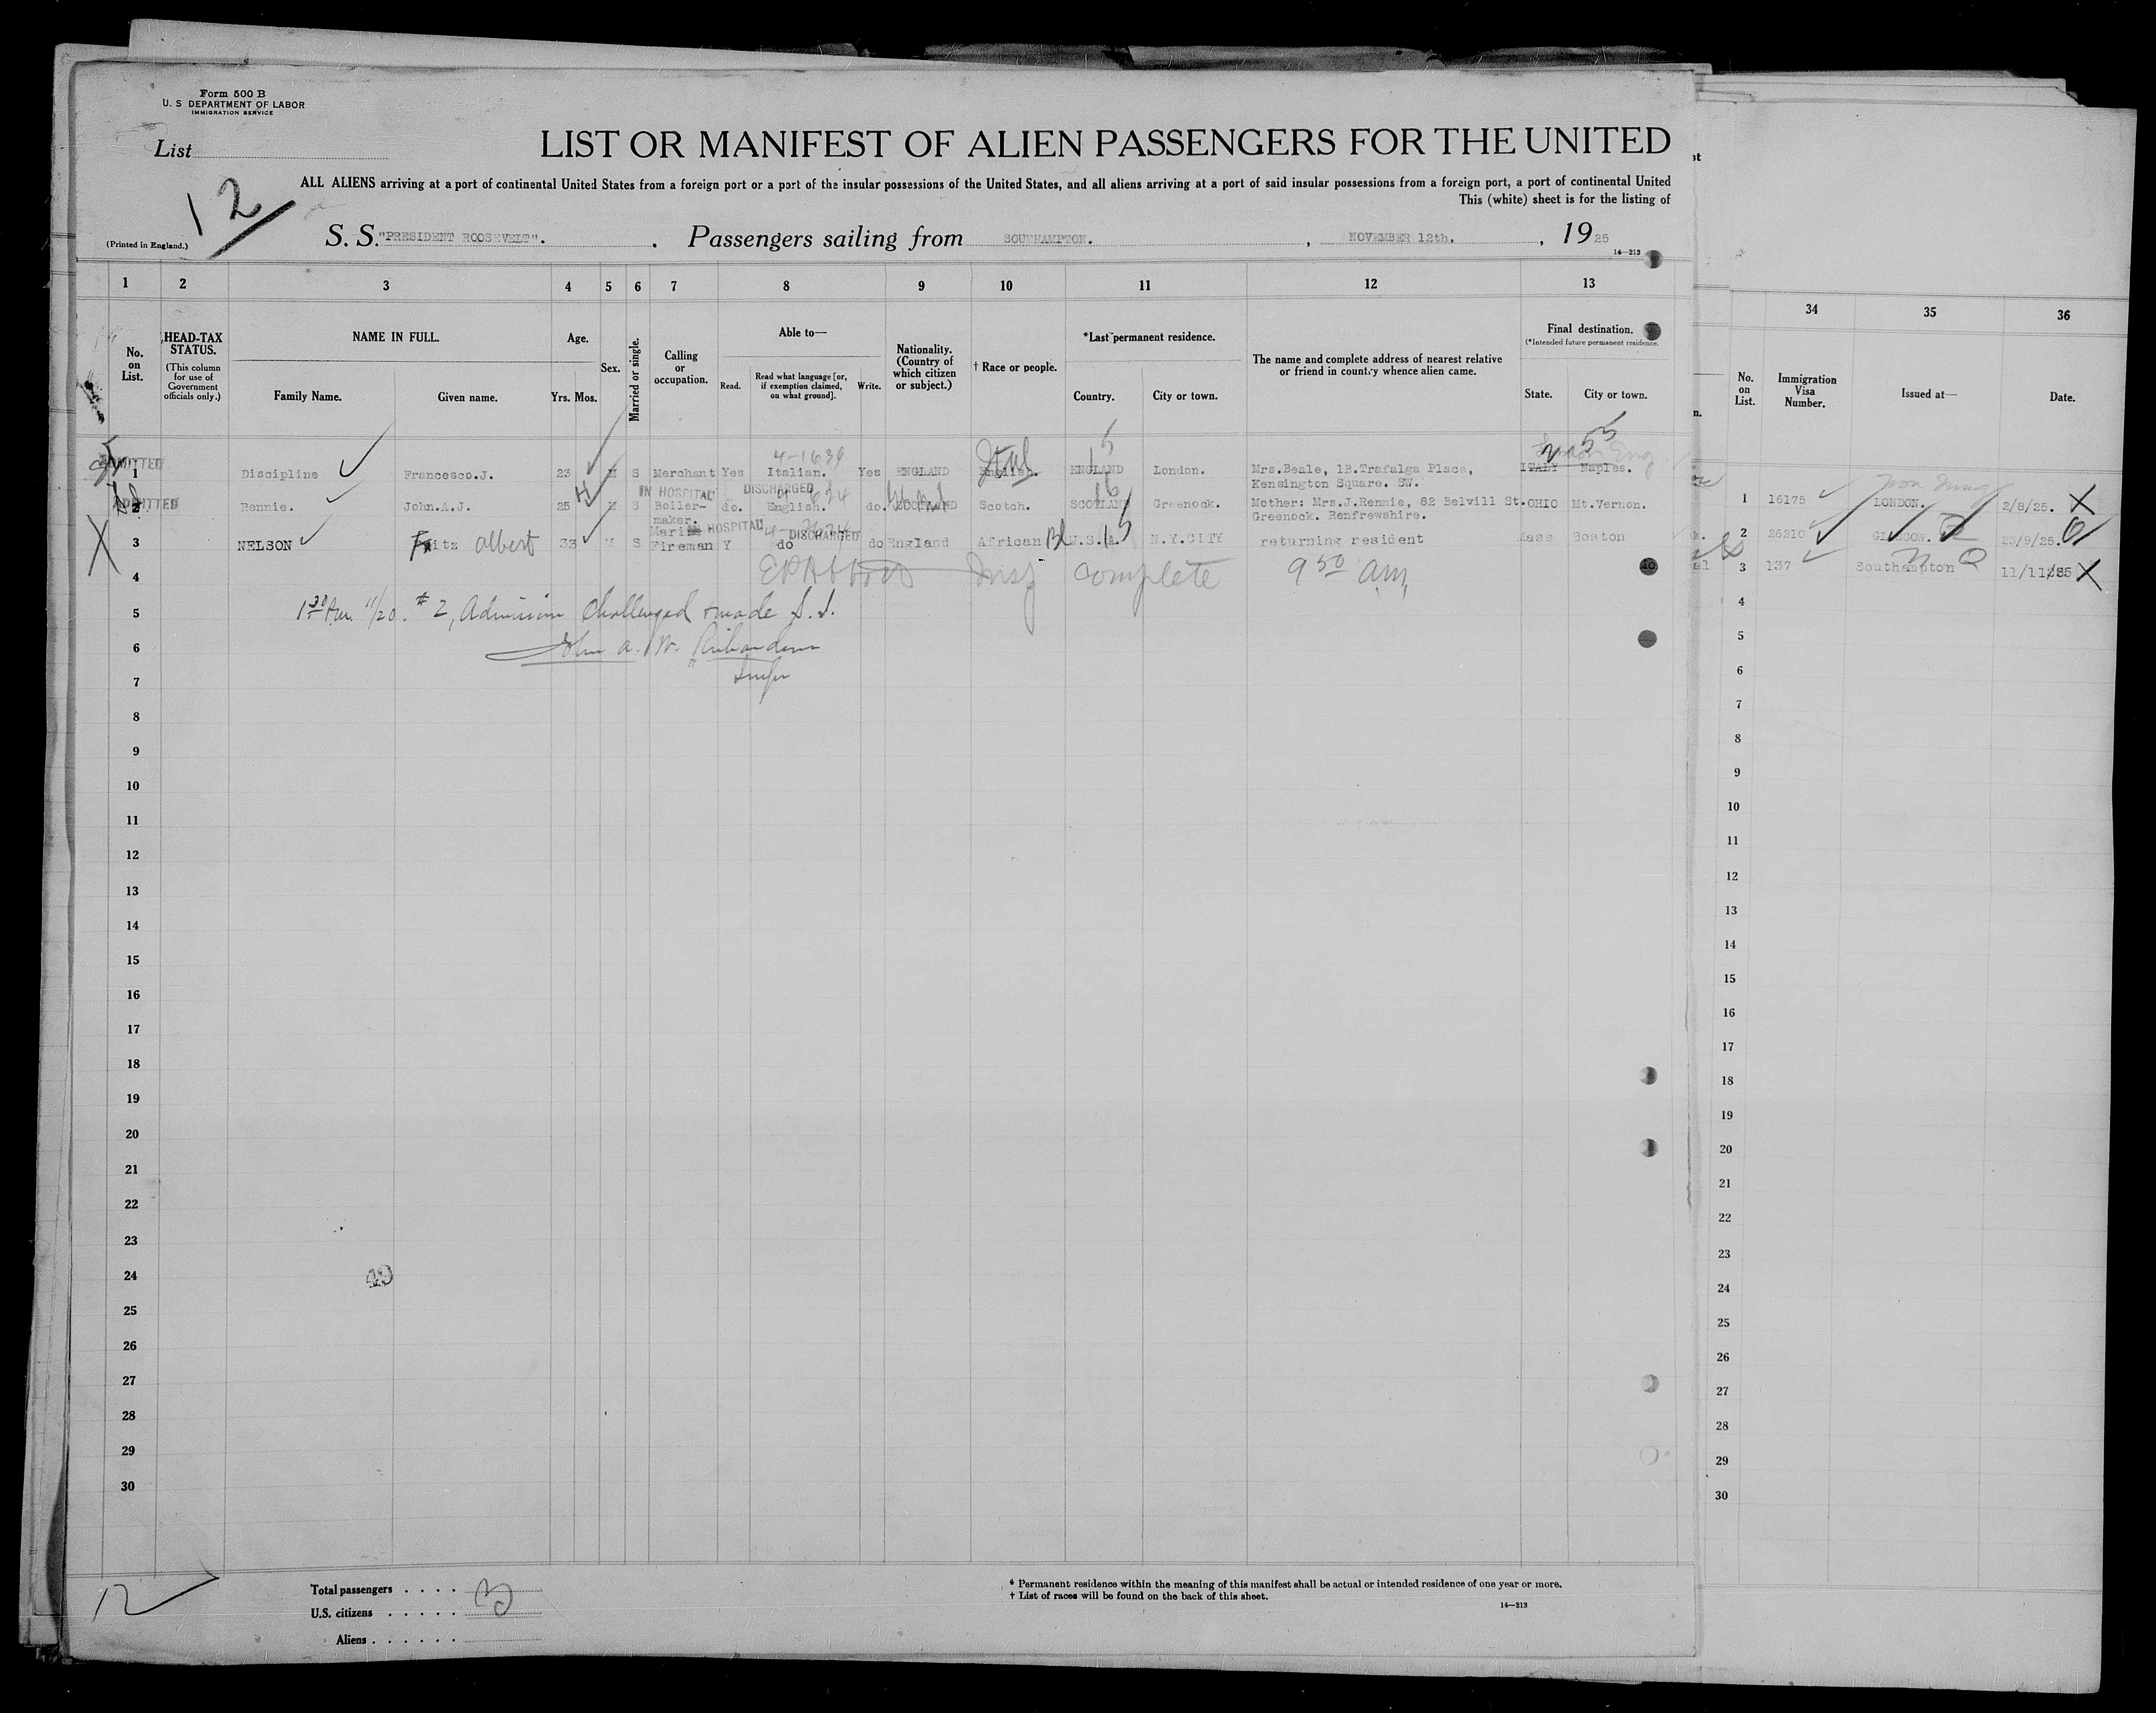 Form 500 B
U. S DEPARTMENT OF LABOR
IMMIGRATION SERVICE
List
LIST OR MANIFEST OF ALIEN PASSENGERS FOR THE UNITED
12
ALL ALIENS arriving at a port of continental United States from a foreign port or a port of the insular possessions of the United States, and all aliens arriving at a port of said insular possessions from a foreign port, a port of continental United
This (white) sheet is for the listing of
(Printed in England.)
S. S. "PRESIDENT ROOSEVELT". . Passengers sailing from SOUTHAMPTON. , NOVEMBER 12th. , 1925
14—213
1 2 3 4 5 6 7 8 9 10 11 12 13
34 35 36
No. on List.
HEAD-TAX STATUS.
(This column for use of Government officials only.)
NAME IN FULL.
Family Name. Given name.
Age.
Yrs. Mos.
Sex.
Married or single.
Calling or occupation.
Able to—
Read. Read what language [or, if exemption claimed, on what ground]. Write.
Nationality. (Country of which citizen or subject.)
† Race or people.
*Last permanent residence.
Country. City or town.
The name and complete address of nearest relative or friend in country whence alien came.
Final destination.
(*Intended future permanent residence.
State. City or town.
No. on List.
Immigration Visa Number.
Issued at—
Date.
4-1639
ADMITTED
1 Discipline Francesco.J. 23 M S Merchant Yes Italian. Yes ENGLAND English. Ital ENGLAND London. Mrs.Beale, 1B.Trafalga Place, ITALY Naples.
Kensington Square. SW.
IN HOSPITAL DISCHARGED
ADMITTED
2 Rennie. John.A.J. 25 M S Boiler- do. English. do. SCOTLAND Scotch. SCOTLAND Greenock. Mother: Mrs.J.Rennie, 82 Belvill St. OHIO Mt.Vernon.
maker. Greenock. Renfrewshire.
IN HOSPITAL DISCHARGED
3 NELSON Fritz Albert 33 M S Marine Fireman Y do do England African Bl U.S.A. N.Y.CITY returning resident Mass Boston
1 16175 LONDON. 2/8/25. X
2 26210 GLASGOW. 23/9/25.
3 137 Southampton 11/11/25 X
4 Insp complete 9 50 am,
5 1 30 P.m. 11/20. #2, Admission challenged + made S.I.
6 John A. W. Richardson
7 Inspr
8
9
10
11
12
13
14
15
16
17
18
19
20
21
22
23
24
49
25
26
27
28
29
30
4
5
6
7
8
9
10
11
12
13
14
15
16
17
18
19
20
21
22
23
24
25
26
27
28
29
30
12
Total passengers . . . . 3
U.S. citizens . . . . .
Aliens . . . . . .
* Permanent residence within the meaning of this manifest shall be actual or intended residence of one year or more.
† List of races will be found on the back of this sheet.
14—213